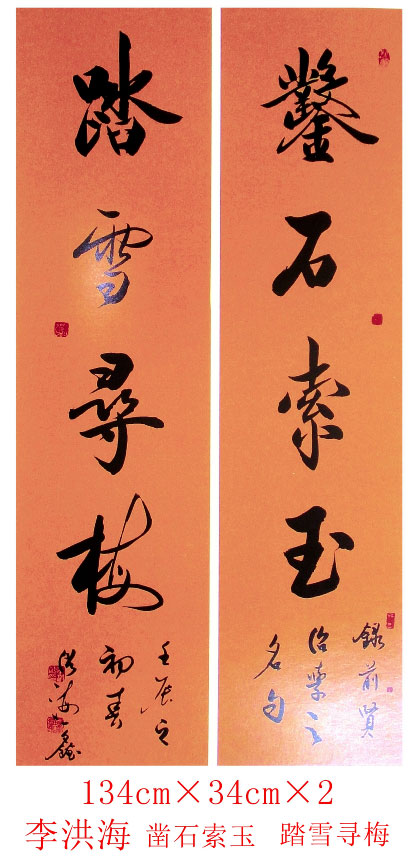 鑿石索玉
錄前賢
治學之
名句
踏雪尋梅
壬辰之
初春
洪海
134cm×34cm×2
李洪海 凿石索玉 踏雪寻梅